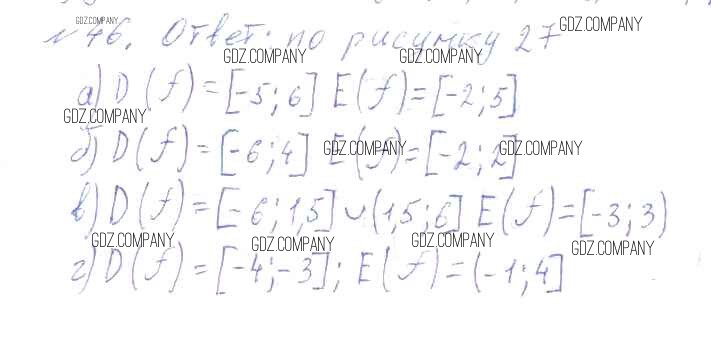 № 46. Ответ: по рисунку 27
а) D(f) = [-5; 6] E(f) = [-2; 5]
б) D(f) = [-6; 4] E(f) = [-2; 2]
в) D(f) = [-6; 1,5] ∪ (1,5; 6] E(f) = [-3; 3)
г) D(f) = [-4; -3]; E(f) = (-1; 4]
GDZ.COMPANY
GDZ.COMPANY
GDZ.COMPANY
GDZ.COMPANY
GDZ.COMPANY
GDZ.COMPANY
GDZ.COMPANY
GDZ.COMPANY
GDZ.COMPANY
GDZ.COMPANY
GDZ.COMPANY